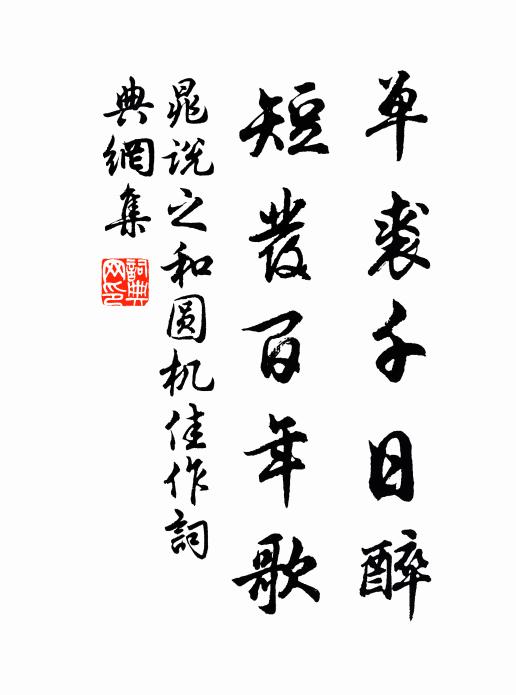 单裘千日醉
短發百年歌
晁说之和圆机佳作詞
典網集
詞典网印